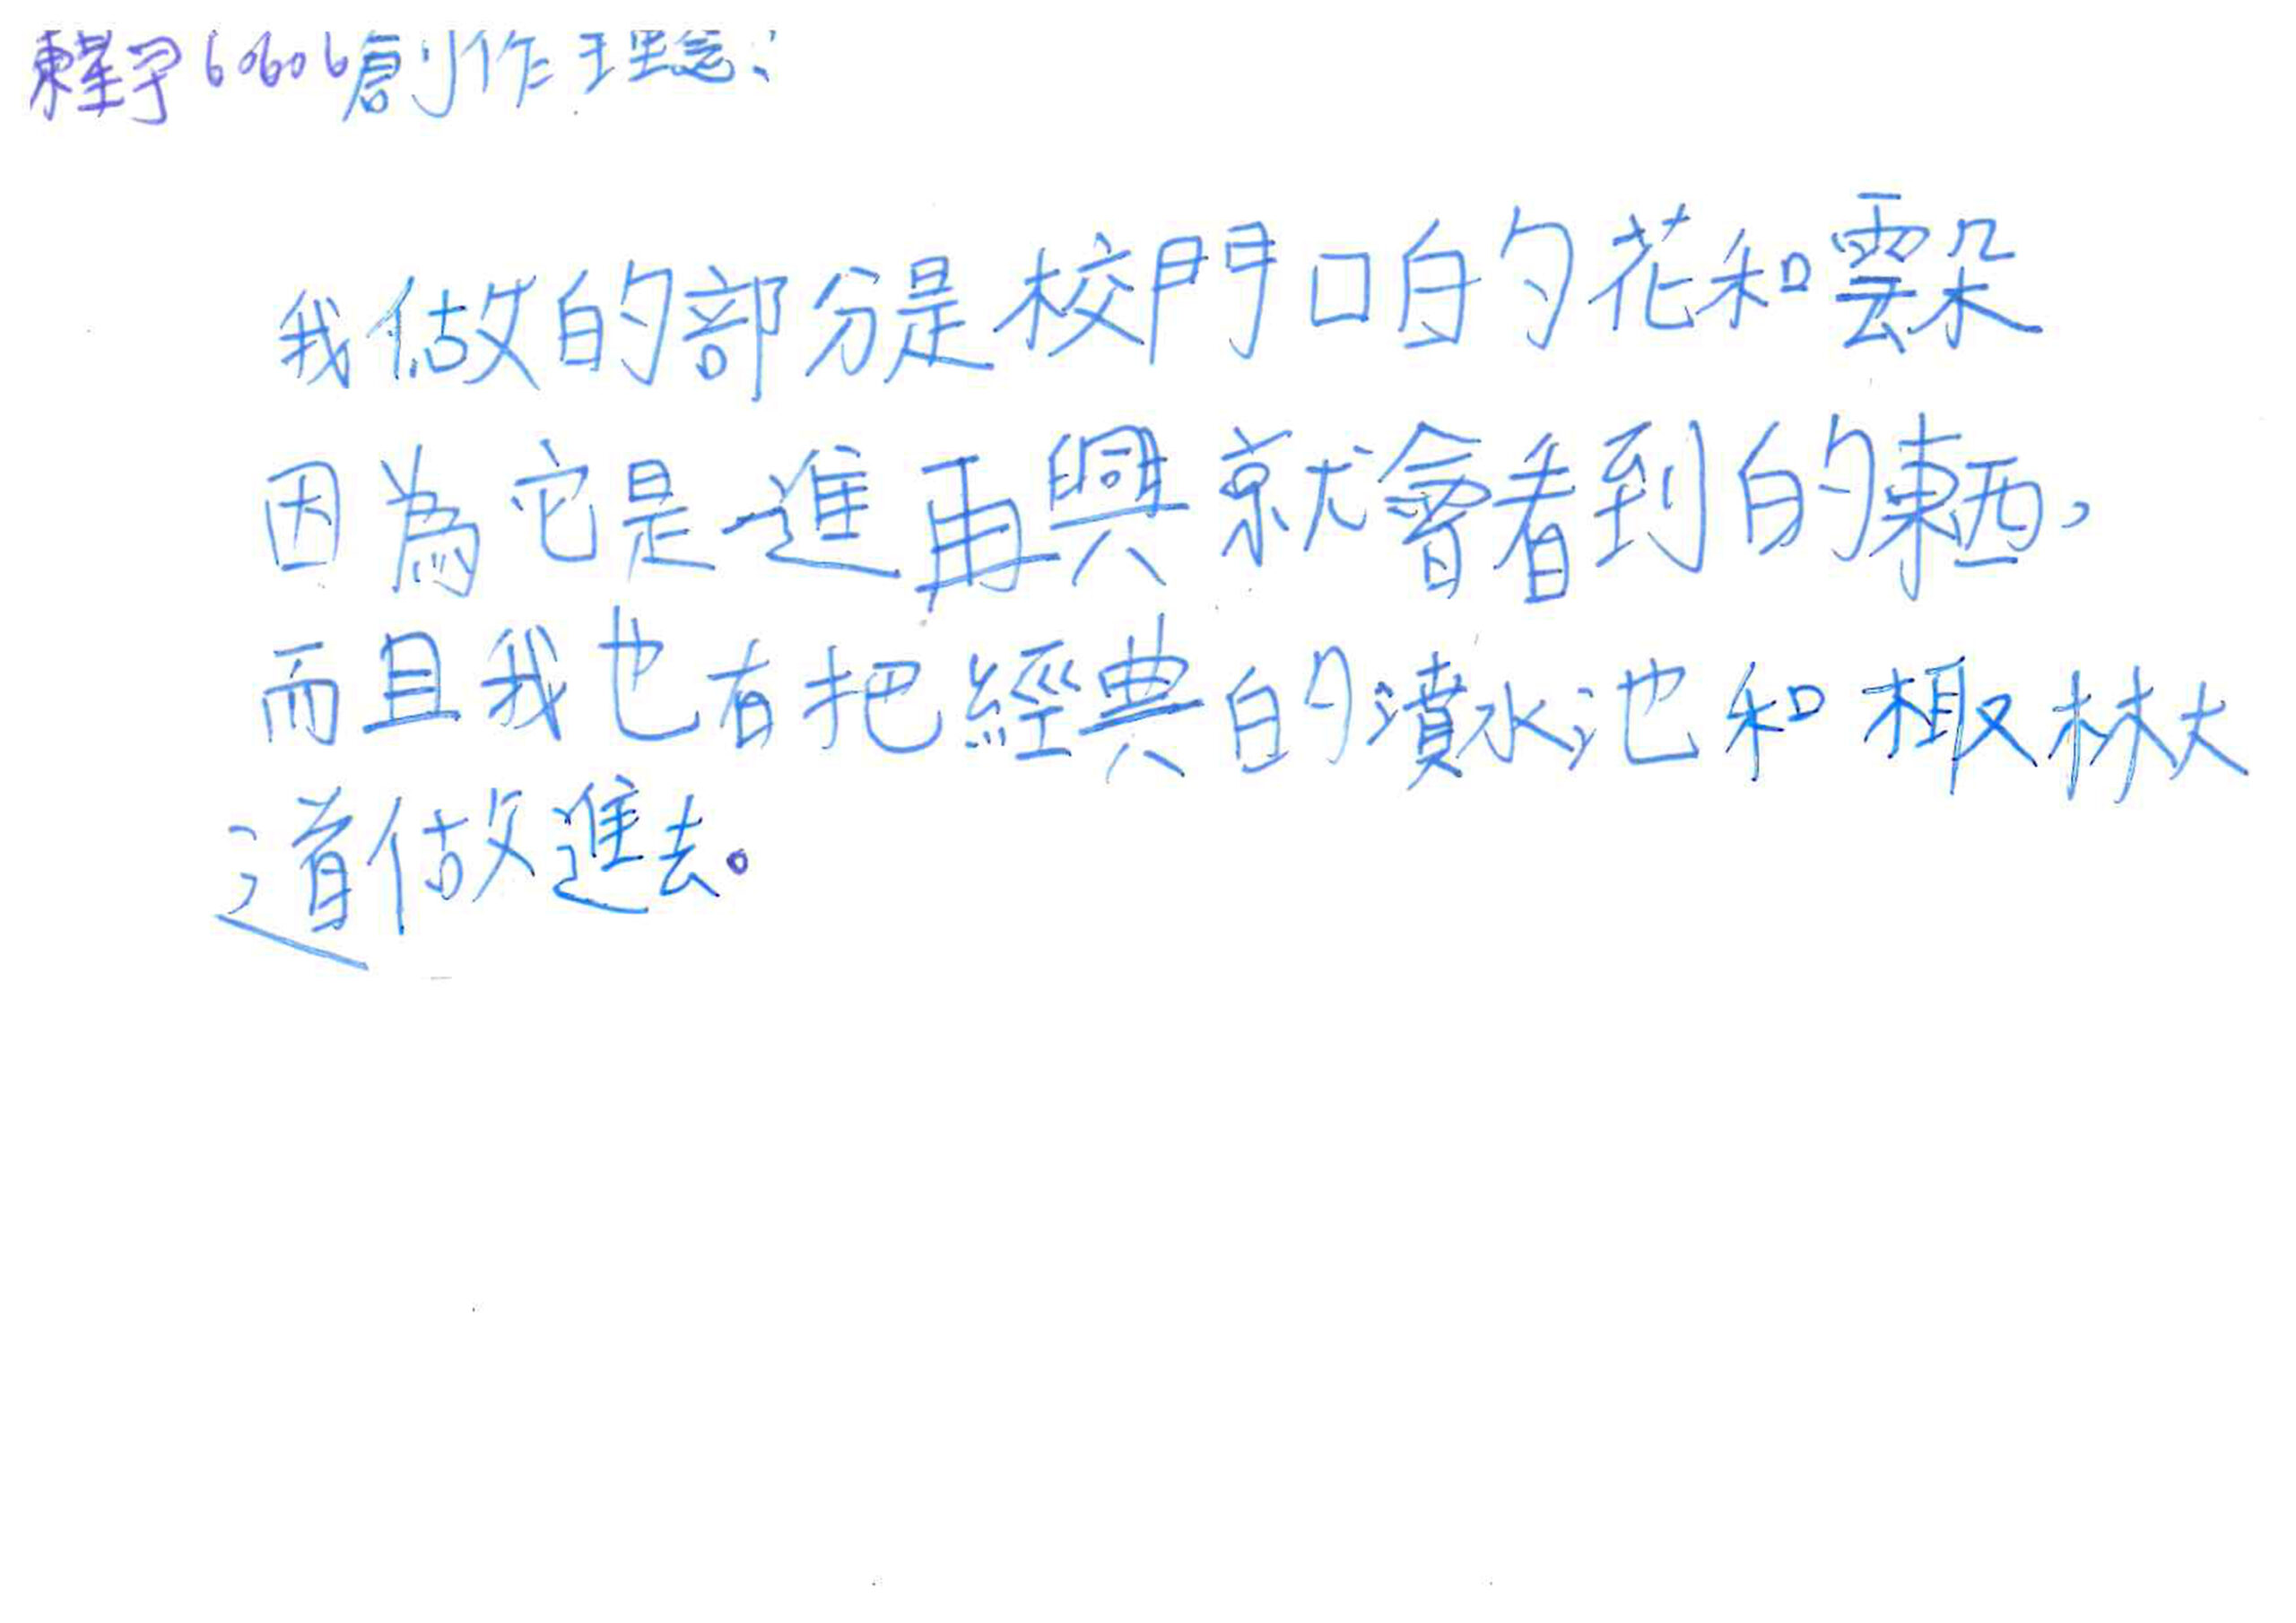 60606創作理念：
我做的部分是校門口的花和雲朵
因為它是一進再興就會看到的東西，
而且我也有把經典的濆水池和棷林大
道做進去。